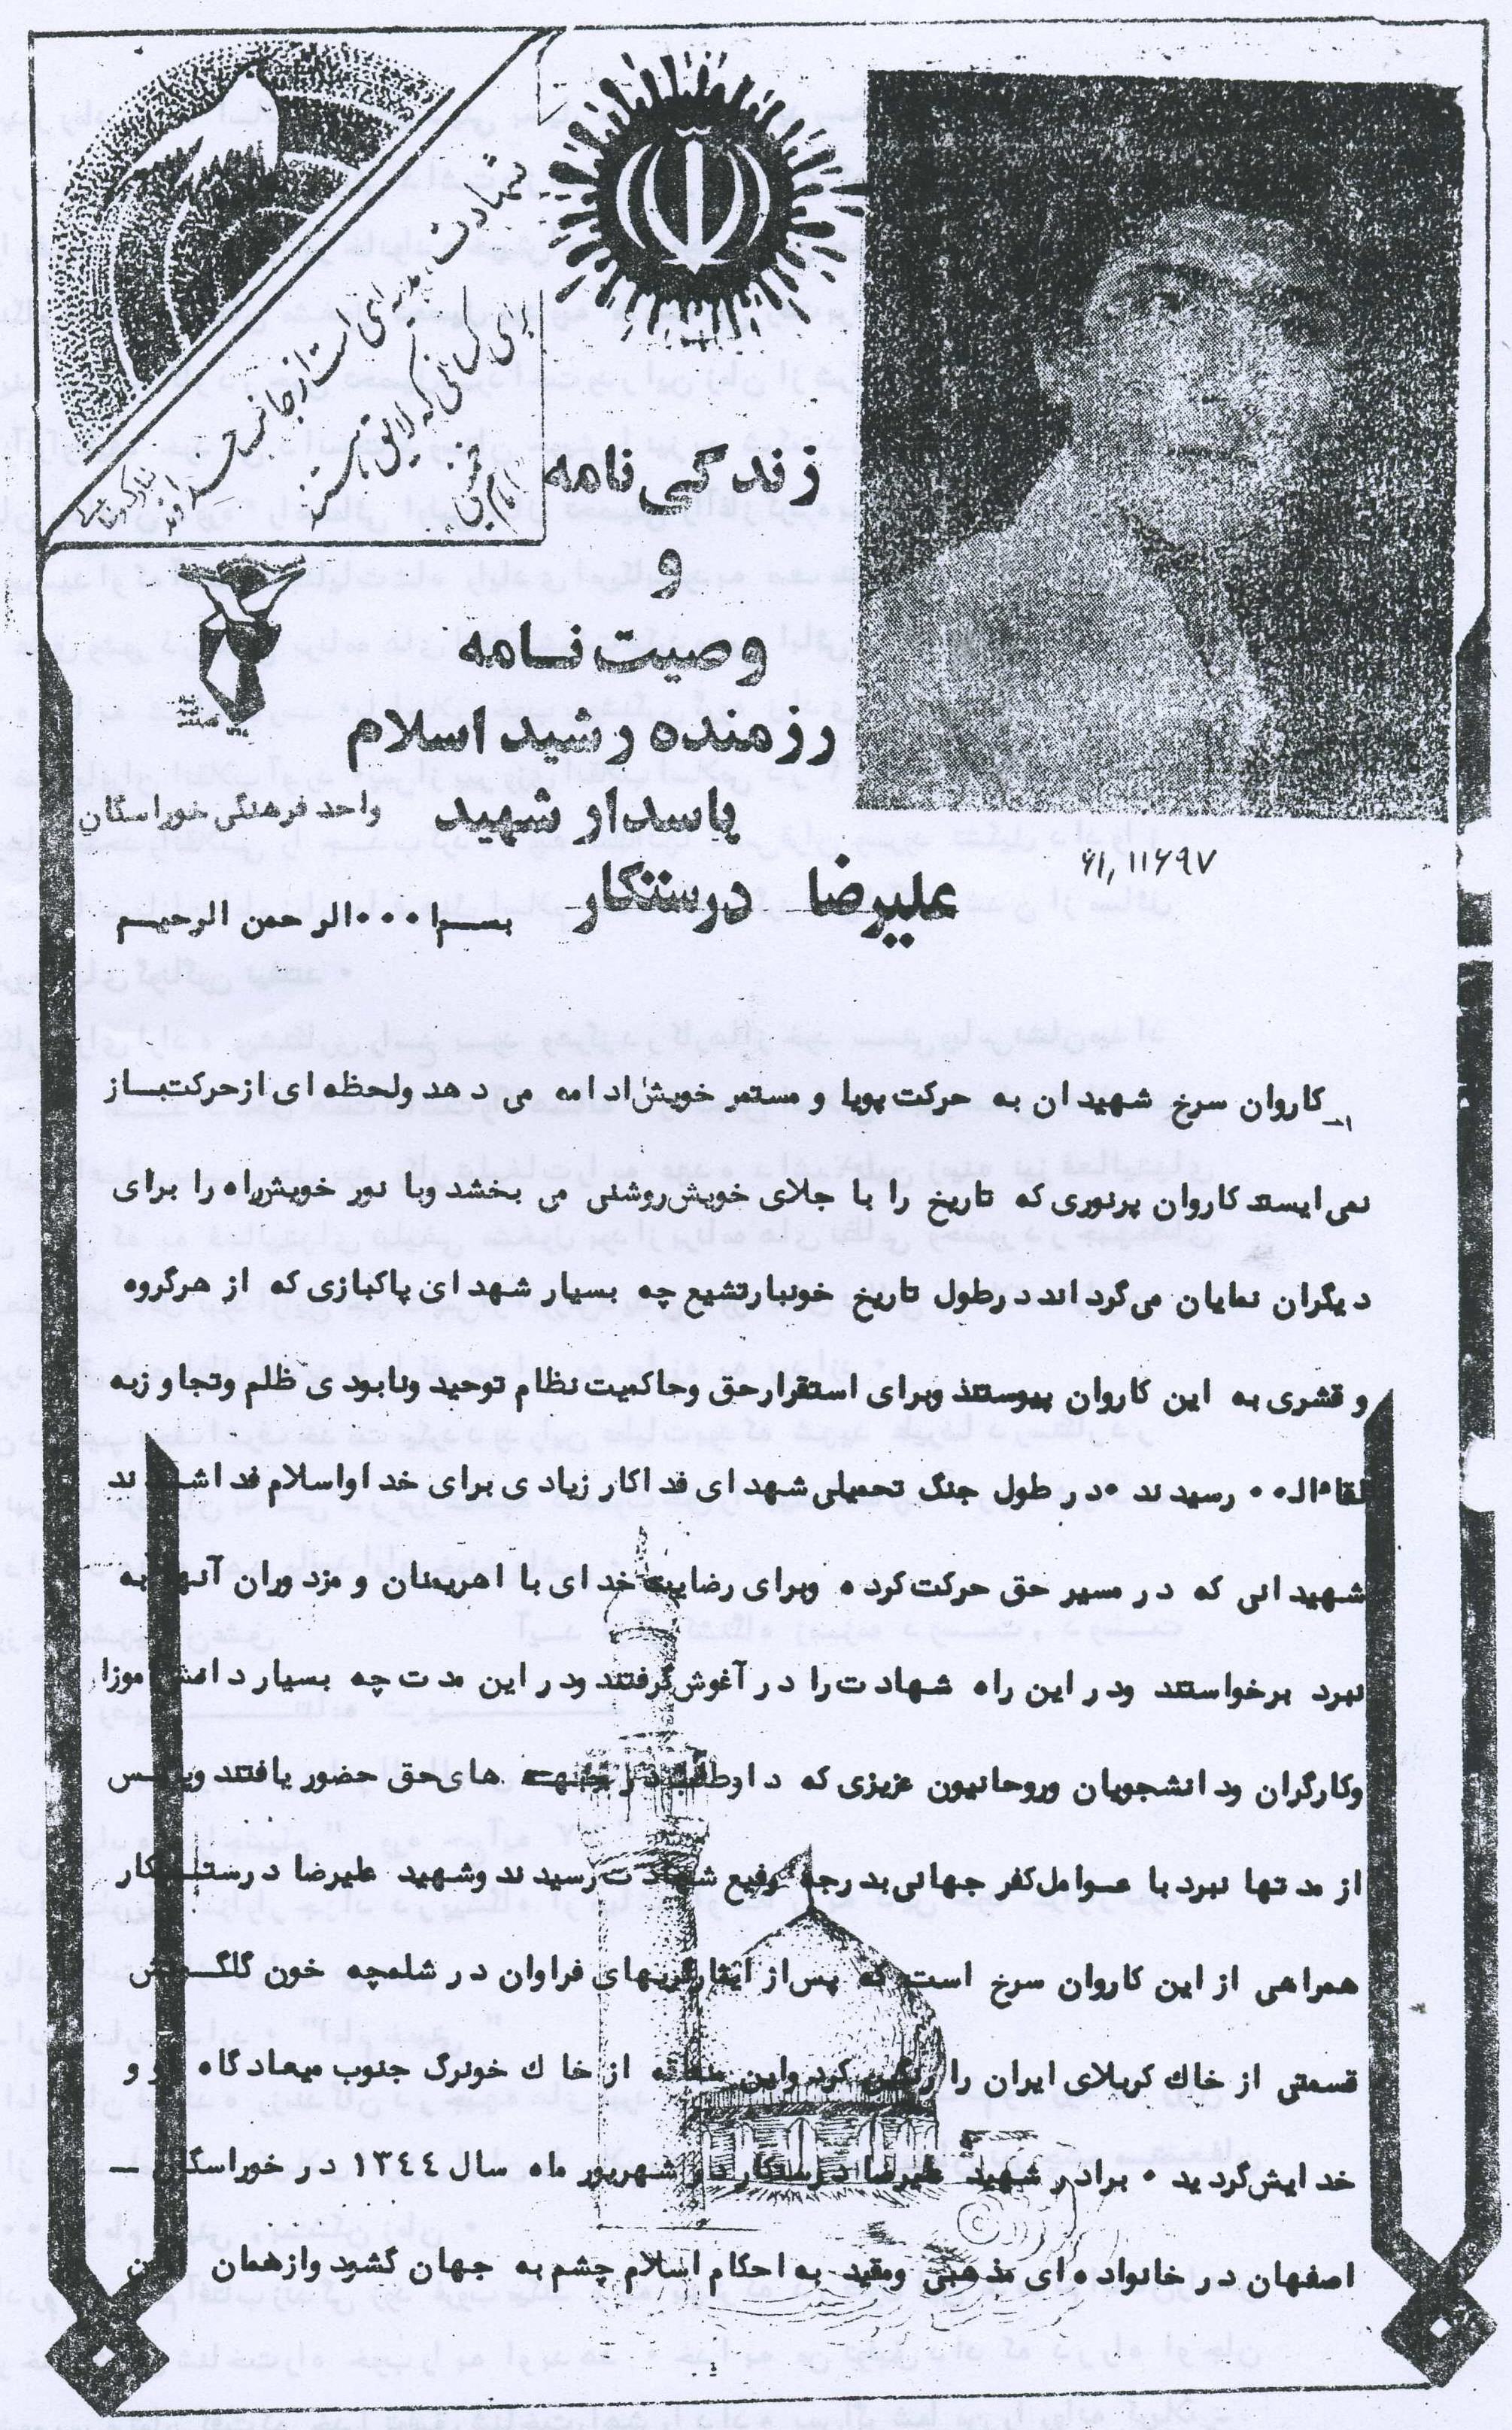 شهادت هدیه ای است از جانب خداوند تبارک و تعالی
برای کسانی که لایق هستند
امام خمینی
زندگی نامه
و
وصیت نامه
رزمنده رشید اسلام
پاسدار شهید
واحد فرهنگی خوراسگان
علیرضا درستکار
۶۱,۱۱۶۹۷
بسم ا... الرحمن الرحیم
کاروان سرخ شهیدان به حرکت پویا و مستمر خویش ادامه می دهد ولحظه ای ازحرکت باز
نمی ایستد کاروان پرنوری که تاریخ را با جلای خویش روشنی می بخشد وبا نور خویش راه را برای
دیگران نمایان می گرداند درطول تاریخ خونبارتشیع چه بسیار شهدای پاکبازی که از هرگروه
و قشری به این کاروان پیوستند وبرای استقرارحق وحاکمیت نظام توحید ونابودی ظلم وتجاوزبه
لقاءالـ.. رسیدند . در طول جنگ تحمیلی شهدای فداکار زیادی برای خدا واسلام فداشدند
شهیدانی که در مسیر حق حرکت کرده وبرای رضایت خدای با اهریمنان و مزدوران آنها به
نبرد برخواستند ودر این راه شهادت را در آغوش گرفتند ودر این مدت چه بسیار دانش آموزا
وکارگران ودانشجویان وروحانیون عزیزی که داوطلب در جبهه های حق حضور یافتند وپس
از مدتها نبرد با عوامل کفر جهانی بدرجه رفیع شهادت رسیدند وشهید علیرضا درستکار
همراهی از این کاروان سرخ است که پس از ایثارگریهای فراوان در شلمچه خون گلگونش
قسمتی از خاك کربلای ایران را رنگین کرد واین منطقه از خاك خونرگ جنوب میعادگاه او و
خدایش گردید . برادر شهید علیرضا درستکار در شهریور ماه سال ١٣٤٤ در خوراسگان –
اصفهان در خانواده ای مذهبی ومقید به احکام اسلام چشم به جهان گشود وازهمان